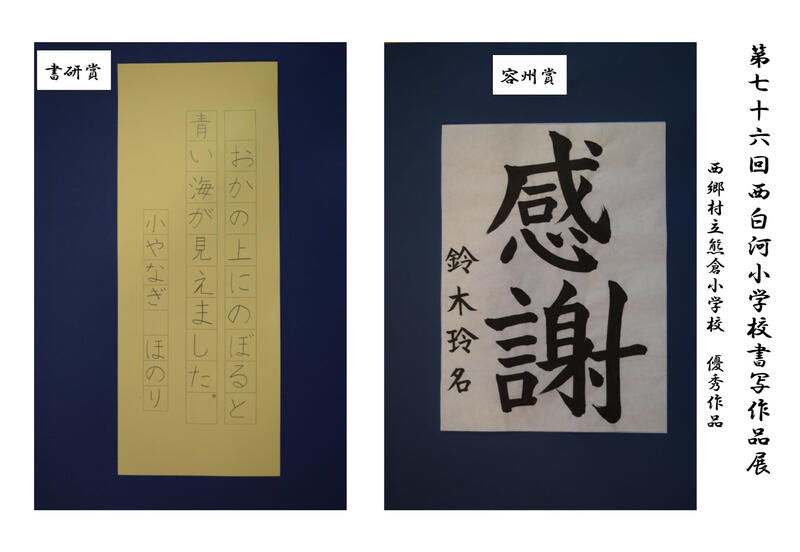 第七十六回西白河小学校書写作品展
西郷村立熊倉小学校　優秀作品
容州賞
感謝
鈴木玲名
書研賞
おかの上にのぼると
青い海が見えました。
小やなぎ　ほのり